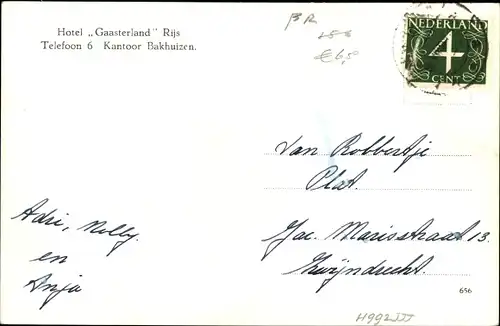 Hotel „Gaasterland" Rijs
Telefoon 6 Kantoor Bakhuizen.
BR
€6,5
NEDERLAND
4
CENT
van Robbertje
Plat.
Jac. Marisstraat 13.
Zwijndrecht.
Adri, Nelly.
en
Anja
656
H992III